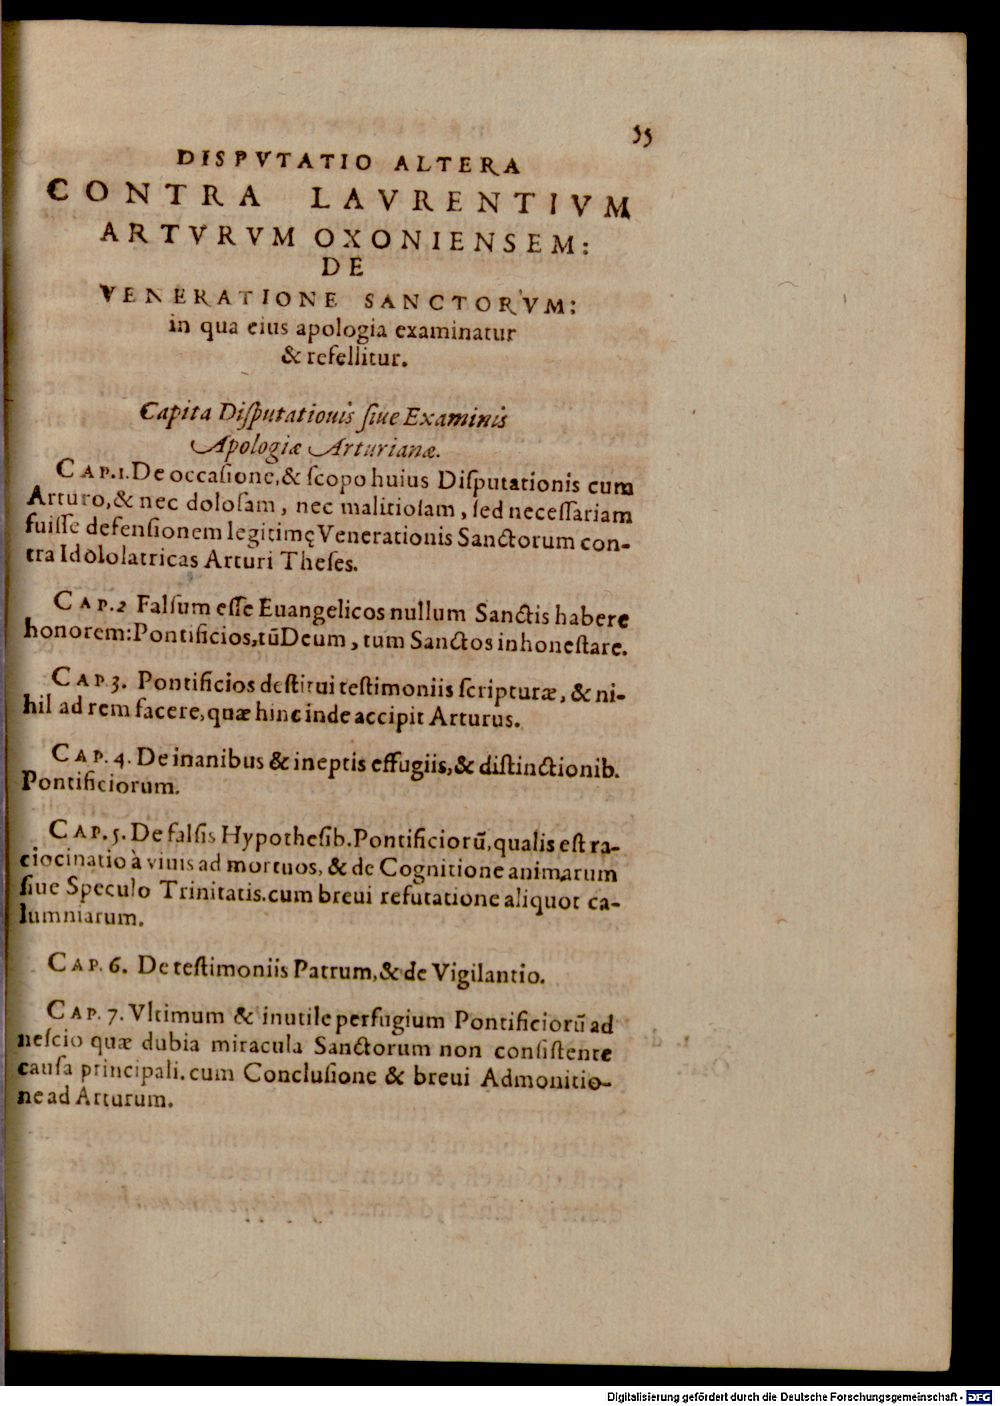 35
DISPVTATIO ALTERA
CONTRA LAVRENTIVM
ARTVRVM OXONIENSEM:
DE
VENERATIONE SANCTORVM:
in qua eius apologia examinatur
& refellitur.
Capita Diſputatiouis ſiue Examinis
Apologiæ Arturianæ.
CAP.1. De occaſione,& ſcopo huius Diſputationis cum
Arturo,& nec doloſam, nec malitioſam, ſed neceſſariam
fuiſſe defenſionem legitimę Venerationis Sanctorum con-
tra Idololatricas Arturi Theſes.
CAP.2 Falſum eſſe Euangelicos nullum Sanctis habere
honorem: Pontificios,tū Deum, tum Sanctos inhoneſtare.
CAP 3. Pontificios deſtitui teſtimoniis ſcripturæ, & ni-
hil ad rem facere,quæ hinc inde accipit Arturus.
CAP. 4. De inanibus & ineptis effugiis,& diſtinctionib.
Pontificiorum.
CAP. 5. De falſis Hypotheſib. Pontificiorū,qualis eſt ra-
ciocinatio à viuis ad mortuos, & de Cognitione animarum
ſiue Speculo Trinitatis. cum breui refutatione aliquot ca-
lumniarum.
CAP. 6. De teſtimoniis Patrum,& de Vigilantio.
CAP. 7. Vltimum & inutile perfugium Pontificiorū ad
neſcio quæ dubia miracula Sanctorum non conſiſtente
cauſa principali. cum Concluſione & breui Admonitio-
ne ad Arturum.
Digitalisierung gefördert durch die Deutsche Forschungsgemeinschaft - DFG